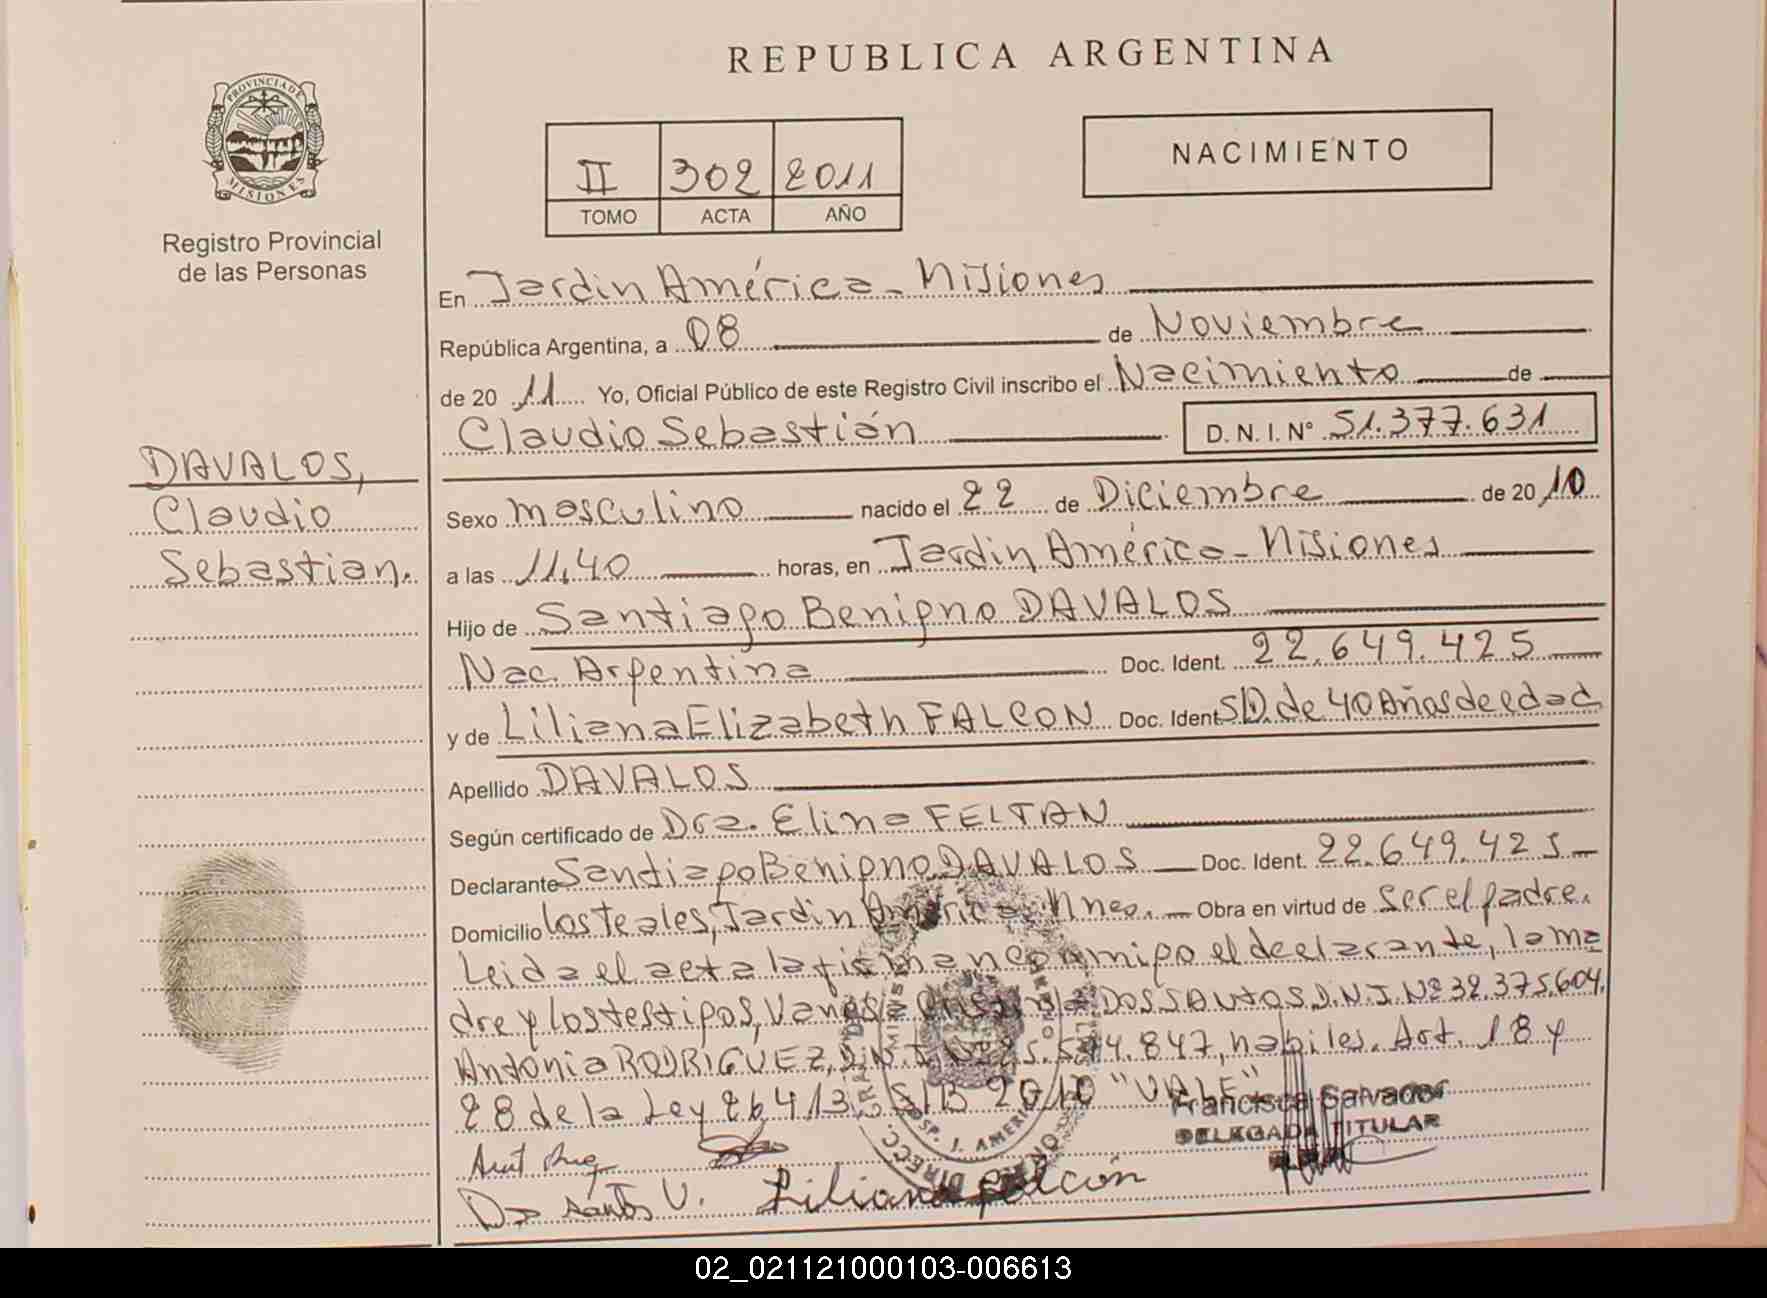 REPUBLICA ARGENTINA
PROVINCIA DE MISIONES
Registro Provincial
de las Personas
II 302 2011
TOMO ACTA AÑO
NACIMIENTO
En Jardin América - Misiones
República Argentina, a 08 de Noviembre
de 20 11 Yo, Oficial Público de este Registro Civil inscribo el Nacimiento de
Claudio Sebastián D. N. I. N° 51.377.631
DAVALOS,
Claudio
Sebastian.
Sexo masculino nacido el 22 de Diciembre de 20 10
a las 11,40 horas, en Jardin América - Misiones
Hijo de Santiago Benigno DAVALOS
Nac. Argentina Doc. Ident. 22.649.425
y de Liliana Elizabeth FALCON Doc. Ident. S/D. de 40 Años de edad
Apellido DAVALOS
Según certificado de Dra. Elina FELTAN
Declarante Santiago Benigno DAVALOS Doc. Ident. 22.649.425
Domicilio los teales, Jardin América, Mnes. Obra en virtud de ser el padre.
Leida el acta la firman conmigo el declarante, la ma
dre y los testigos, Vanesa DOS SANTOS D.N.I. Nº 32.375.604,
Antonia RODRIGUEZ, D.N.I. Nº 25.574.847, habiles. Art. 18 y
28 de la Ley 26413. S/B 2010 "VALE"
Francisca Salvador
DELEGADA TITULAR
Dos santos V. Liliana falcón
02_021121000103-006613